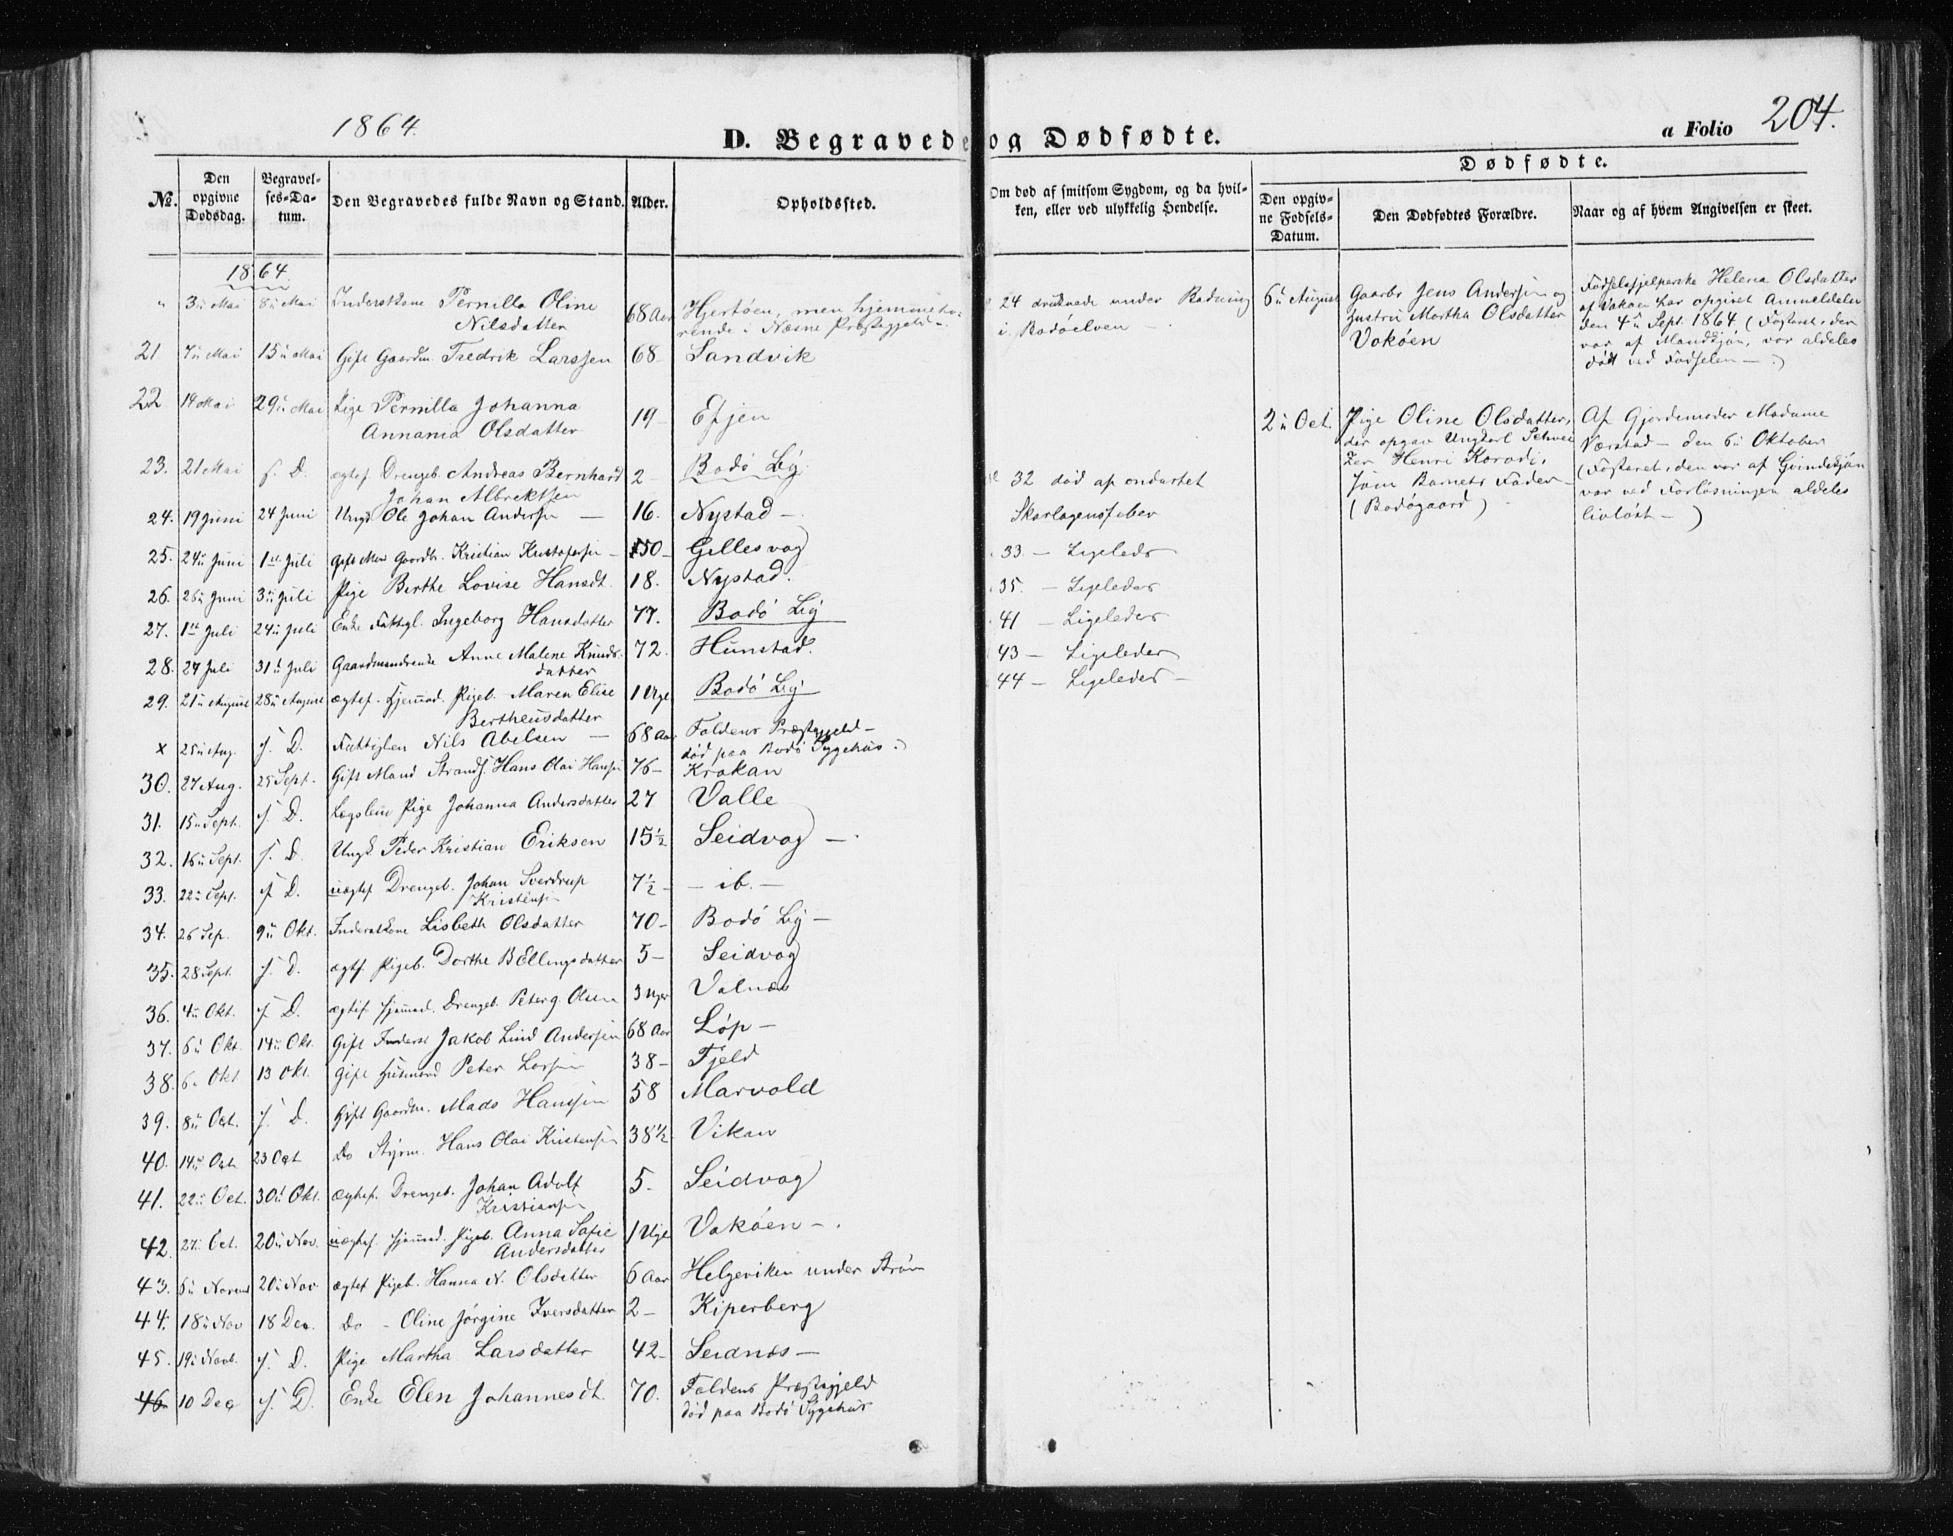 1864
D. Begravede og Dødfødte.
a Folio 204.
Dødfødte.
No. Den opgivne Dødsdag. Begravelses-Datum. Den Begravedes fulde Navn og Stand. Alder. Opholdssted. Om død af smitsom Sygdom, og da hvilken, eller ved ulykkelig Hendelse. Den opgivne Fødsels-Datum. Den Dødfødtes Forældre. Naar og af hvem Angivelsen er skeet.
1864.
" 3die Mai 8de Mai Inderstkone Pernilla Oline 68 Aar Hjertøen, men hjemmehø-
Nilsdatter rende i Næsne Præstegjeld
21 7de Mai 15de Mai Gift Gaardm. Fredrik Larssen 68 Sandvik
22 14 Mai 29de Mai Pige Pernilla Johanna 19 Efjen
Annania Olsdatter
23. 21 Mai s. D. ægtef. Drengeb. Andreas Bernhard 2 Bodø By
Johan Albrektsen
24. 19 Juni 24 Juni Ungk. Ole Johan Andersen 16. Nystad
25. 24de Juni 1ste Juli Gift Gaardbr. Kristian Kristofersen 50 Gillesvag
26. 26de Juni 3de Juli Pige Berthe Lovise Hansdt. 18. Nystad.
27. 1ste Juli 24de Juli Enke Fattigl. Ingeborg Hansdatter 77. Bodø By
28. 24 Juli 31te Juli Gaardmandsenke Anne Malene Knuds- 72. Hunstad.
datter
29. 21de August 28de August ægtef. hjemmed. Pigeb. Maren Elise 1 Uge Bodø By
Bertheusdatter
x 25de Aug. s. D. Fattiglem Nils Abelsen 68 Aar Foldens Præstegjeld
død paa Bodø Sygehus.)
30. 27 Aug. 25 Sept. Gift Mand Strands. Hans Olai Hansen 76 Krokan
31. 15de Sept. s. D. Lægslem Pige Johanna Andersdatter 27 Valle
32. 16de Sept. s. D. Ungk. Peder Kristian Eriksen 15½ Seidvag
33. 22de Sept. s. D. uægtef. Drengeb. Johan Sverdrup 7½ ib.
Kristensen
34. 26 Sep. 9de Okt. Inderstkone Lisbeth Olsdatter 70 Bodø By
35. 28 Sept. s. D. ægtf. Pigeb. Dorthe B Ellingsdatter 5 Seidvag
36. 4de Okt. s. D. ægtef. hjemmed. Drengeb. Peter G. Olsen 3 Uger Valnæs
37. 6de Okt. 14de Okt. Gift Inderst Jakob Lind Andersen 68 Aar Løp
38. 6te Okt 13 Okt. Gift Husmand Peter Larsen 38 Fjeld
39. 8de Oct. s. D. Gift Gaardm. Mads Hanssen 58 Marvold
40. 14de Oct. 23 Oct Do Styrm. Hans Olai Kristensen 38½ Vikan
41. 22de Oct. 30de Okt. ægtef. Drengeb. Johan Adolf 5. Seidvag
Kristiansen
42. 27. Oct. 20de Nov. uægtef. hjemmed. Pigeb. Anna Sofie 1 Uge Vokøen
Andersdatter
43. 6de Novem 20de Nov ægtef Pigeb. Hanna N. Olsdatter 6 Aar Helgeviken under Strøm
44. 18de Nov 18 Dec. Do - Oline Jørgine Iversdatter 2 Kiperberg
45. 19de Novb. s. D. Pige Martha Larsdatter 42 Seidnæs
46 10 Dec s. D. Enke Elen Johannesdt. 70. Foldens Præstegjeld
død paa Bodø Sygehus
24 druknede under Badning
i Bodøelven
32 død af ondartet
Skarlagensfeber
33. — Ligeleds
35. — Ligeledes
41 — Ligeledes
43 — Ligeledes
44 — Ligeledes
6te August Gaardbr Jens Andersen og
Hustru Martha Olsdatter
Vokøen
Fødselshjelperske Helena Olsdatter
af Vakøen har opgivet Anmeldelsen
den 4de Sept. 1864. (Fosteret, der
var af Mandkjøn, var aldeles
død ved Fødselen —.)
2de Oct. Pige Oline Olsdatter,
der opgav Ungkarl Schwei
zer Henri Korodi,
som Barnets Fader
(Bodøgaard)
Af Gjordemoder Madame
Værstad — den 6te Oktober
(Fosteret, den var af Qvindekjøn
var ved Forløsningen aldeles
livløst —)